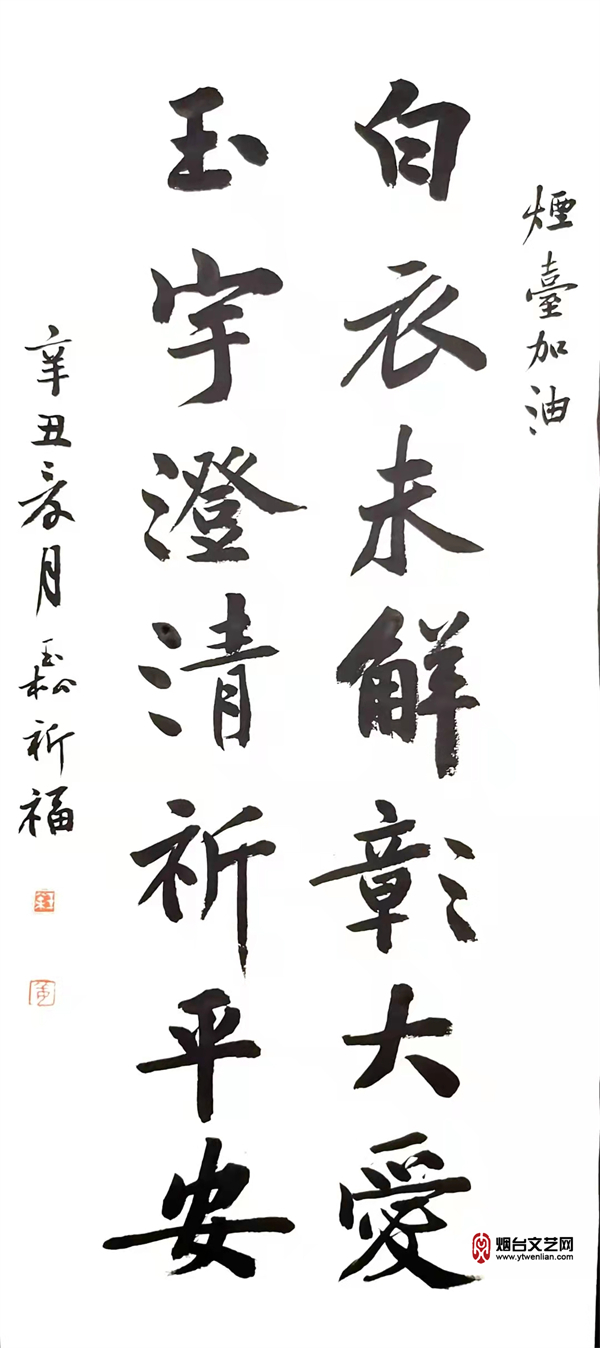 煙臺加油
白衣未觧彰大愛
玉宇澄清祈平安
辛丑月祈福
烟台文艺网
www.ytwenlian.com